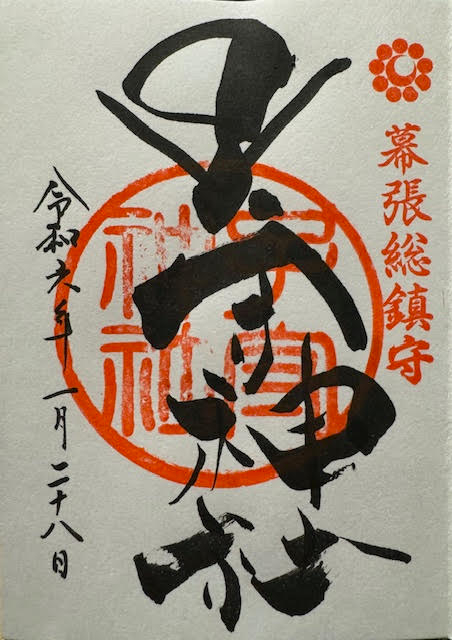 幕張総鎮守
子守神社
子守神社
令和六年一月二十八日